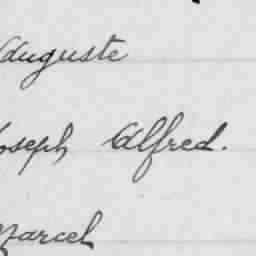 Auguste
Joseph Alfred.
Marcel